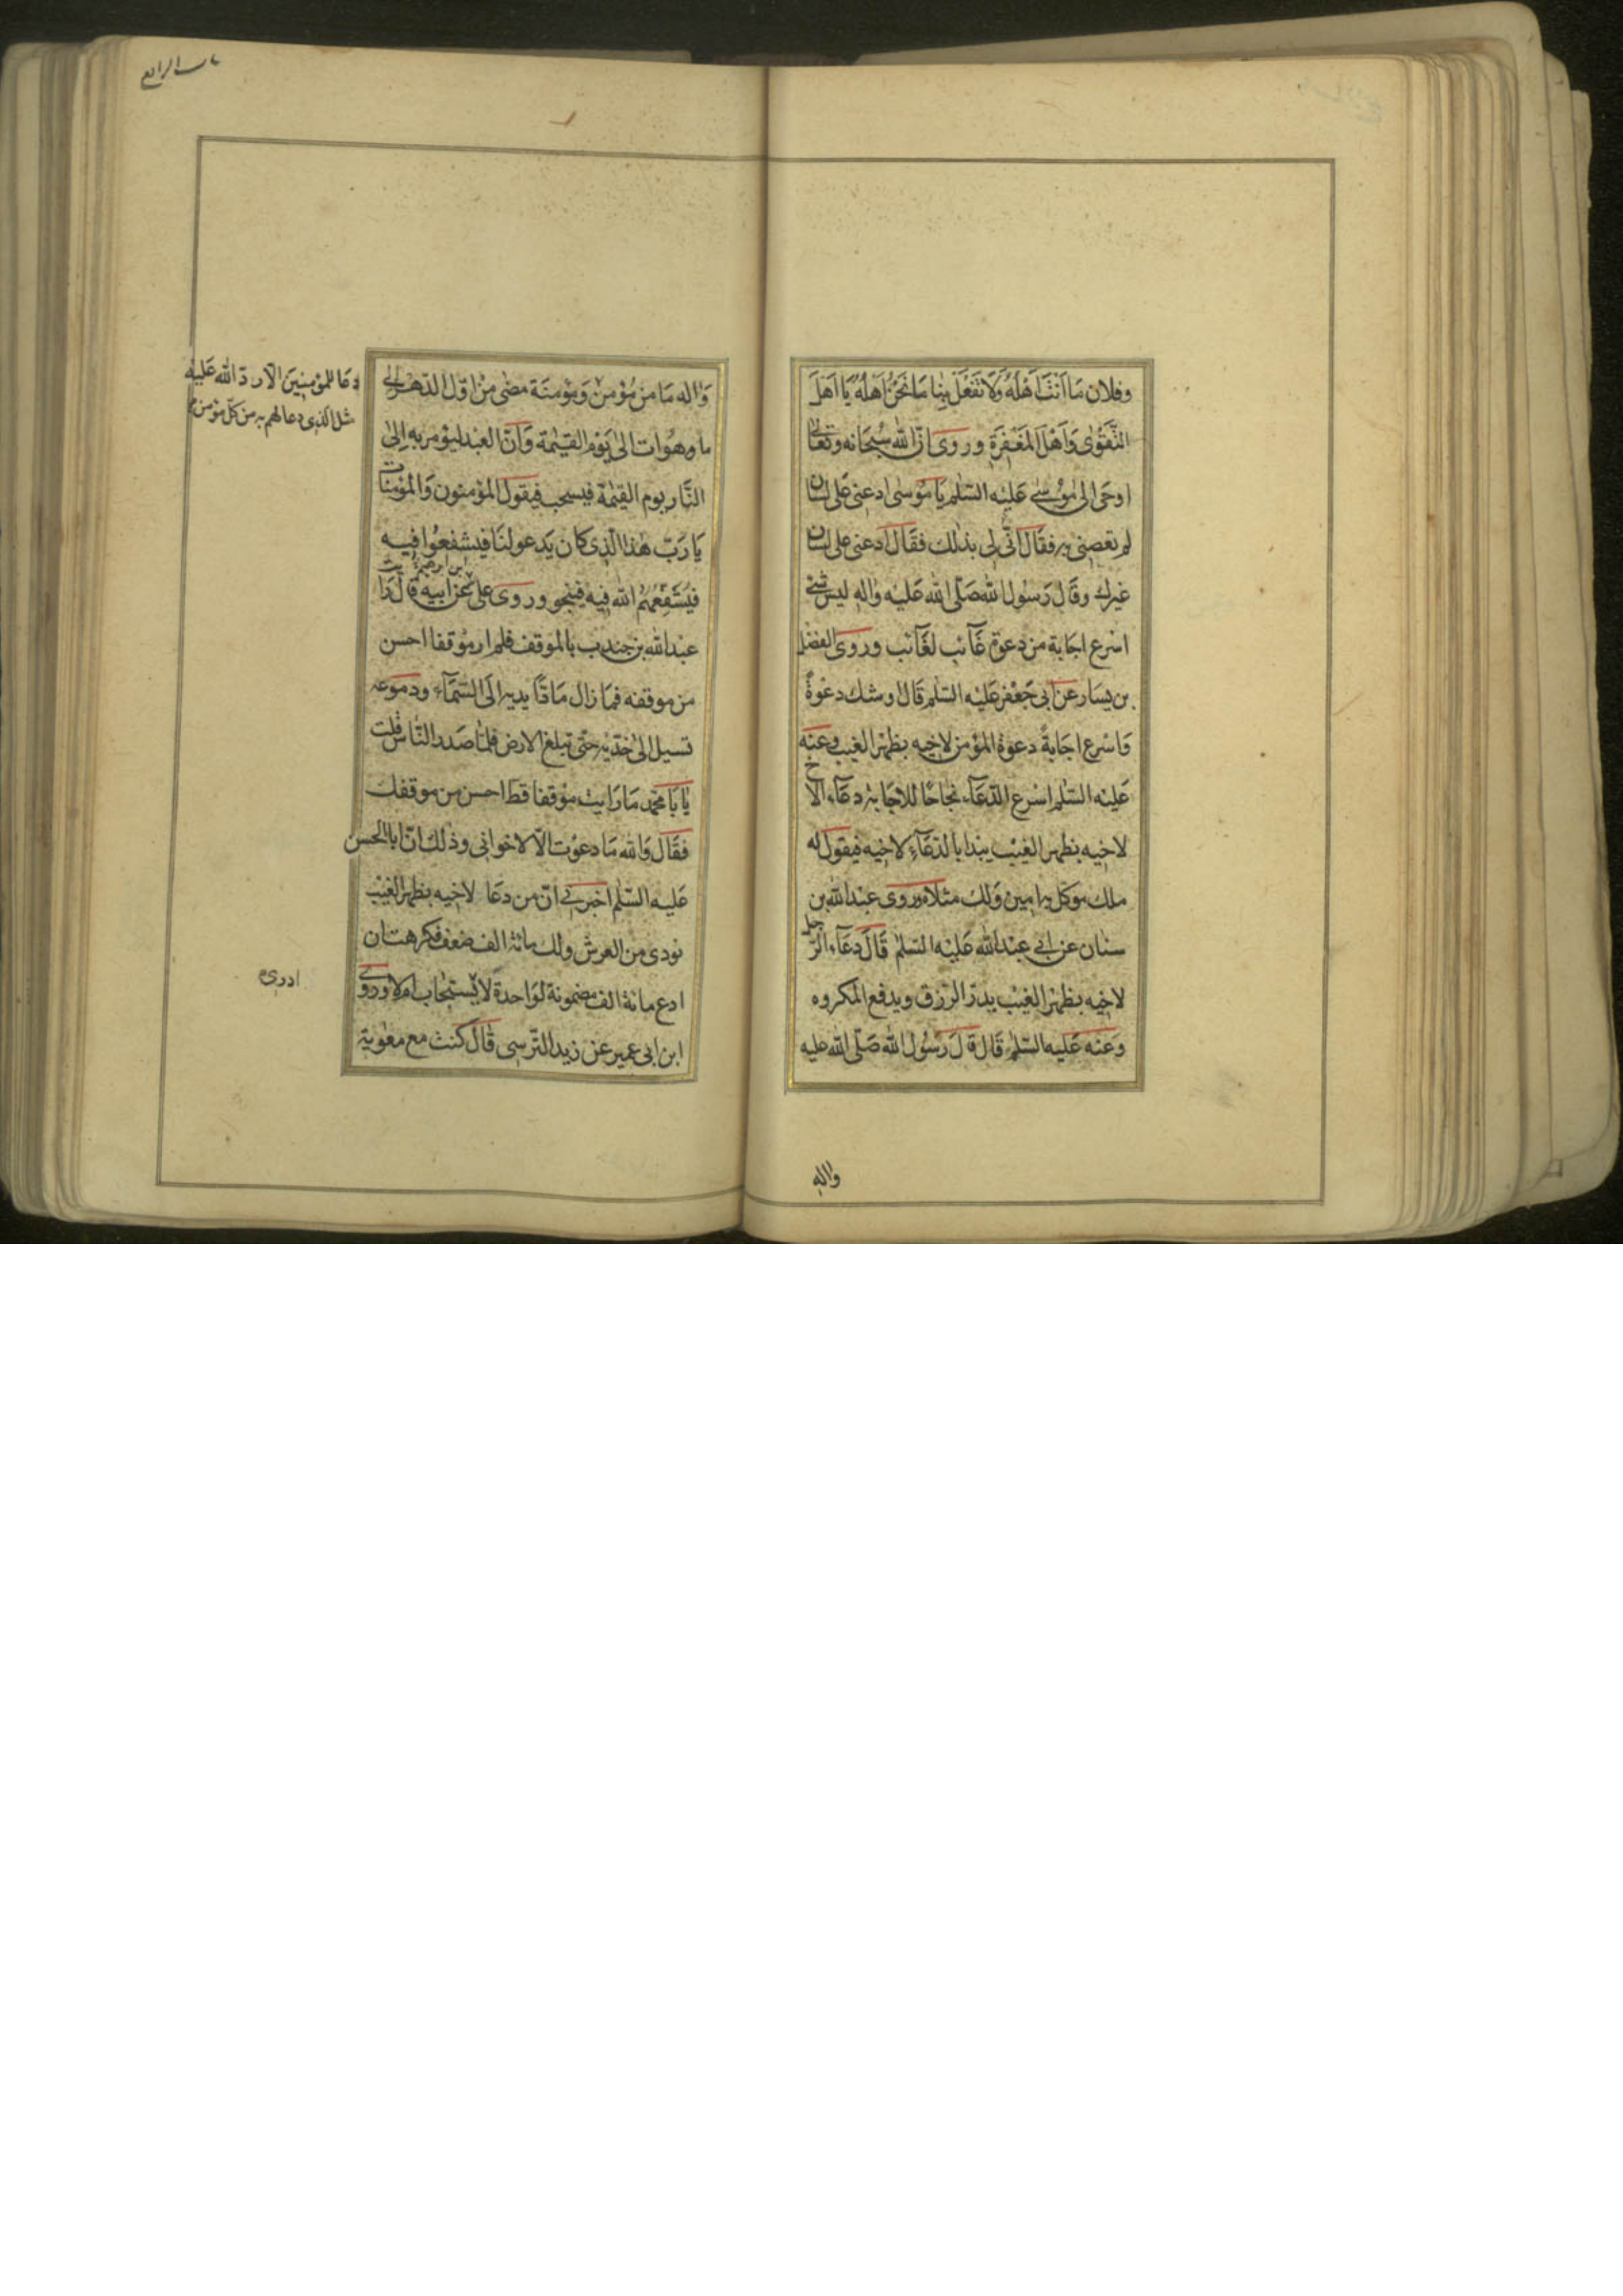 وفلان مَا اَنْتَ اَهْلُهُ وَلَا تَفْعَلْ بِنِا مَا نَحْنُ اَهْلُهُ يَا اَهْلَ
التَّقْوٰى وَاَهْلَ المَغْفِرَةِ وروى انّ الله سُبحَانه وتعالى
اوحَى الى مُوسٰى عَلَيْه السَّلٰم يَا مُوسٰى ادعنى عَلى لسان
لم تعصنى به فقَال انّى لى بذٰلك فقَال ادعنى على لسان
غيرك وقال رَسُول الله صَلّى الله عَليْه واٰله ليس شئ
اسْرع اجَابة من دعوة غَآئب لغَآئب وروى الفضل
بن يسَار عن ابى جَعْفر عَليْه السّلٰم قال اوشك دعْوةً
وَاسْرع اجَابةً دعوة المؤمن لاخيه بظهْر الغيب وعنه
عَليْه السّلٰم اسْرع الدّعَآء نجَاحًا للاجَابة دعَآء الاخ
لاخيه بظهر الغيْب يبْدا بالدّعَآء لاخيه فيقول له
ملك موكل به اٰمين وَلك مثلاه وروى عبْدالله بن
سنان عن ابى عبْدالله عَليْه السّلٰم قَالَ دعَآء الرّجل
لاخيه بظهْر الغيْب يدرّ الرّزق ويدفع المكروه
وَعنه عَليه السّلٰم قَال قالَ رَسُول الله صَلّى الله عليه
واٰله
باب الرابع
وَاٰله مَا من مُؤمنٌ وَمؤمنَة مضٰى منْ اوّل الدّهر الى
ما وهوات الىٰ يَوْم القيٰمة وَانّ العبْد ليؤمر به اِلىٰ
النّار يوم القيٰمة فيسحب فيقول المؤمنون وَالمؤمنات
يَا رَبّ هٰذا الّذى كان يَدعو لنَا فيشفعُوا فيه
فيُشَفّعهُمُ الله فيه فينجو وروى على بن ابرهيم عن ابيه قال رَايت
عبْدالله بن جندب بالموقف فلم ار مَوْقفا احسن
من موقفه فمَا زال مَادًّا يديه الَى السّمَآء ودموعه
تسيل الىٰ خدّيْه حتّى تبلغ الارض فلمّا صَدر النّاس قلت
يَا بَا محمّد مَا رَايت موْقفا قط احسن من موقفك
فقَال وَالله مَا دعوْت الّا لاخوانى وذٰلك انّ ابا الحسن
عَليه السّلٰم اخبرنى انّ من دعَا لاخيه بظهر الغيْب
نودى من العرش ولك مائة الف ضعف فكرهت ان
ادع مائة الف مضمونة لواحدة لا يستجاب ام لا وروى
ابن ابى عمير عن زيد النّرسى قالَ كنت مع معٰوية
دعَا للمؤمنينَ الّا ردّ الله عَليْه
مثل الّذى دعا لهم به من كلّ مؤمن
ادرى